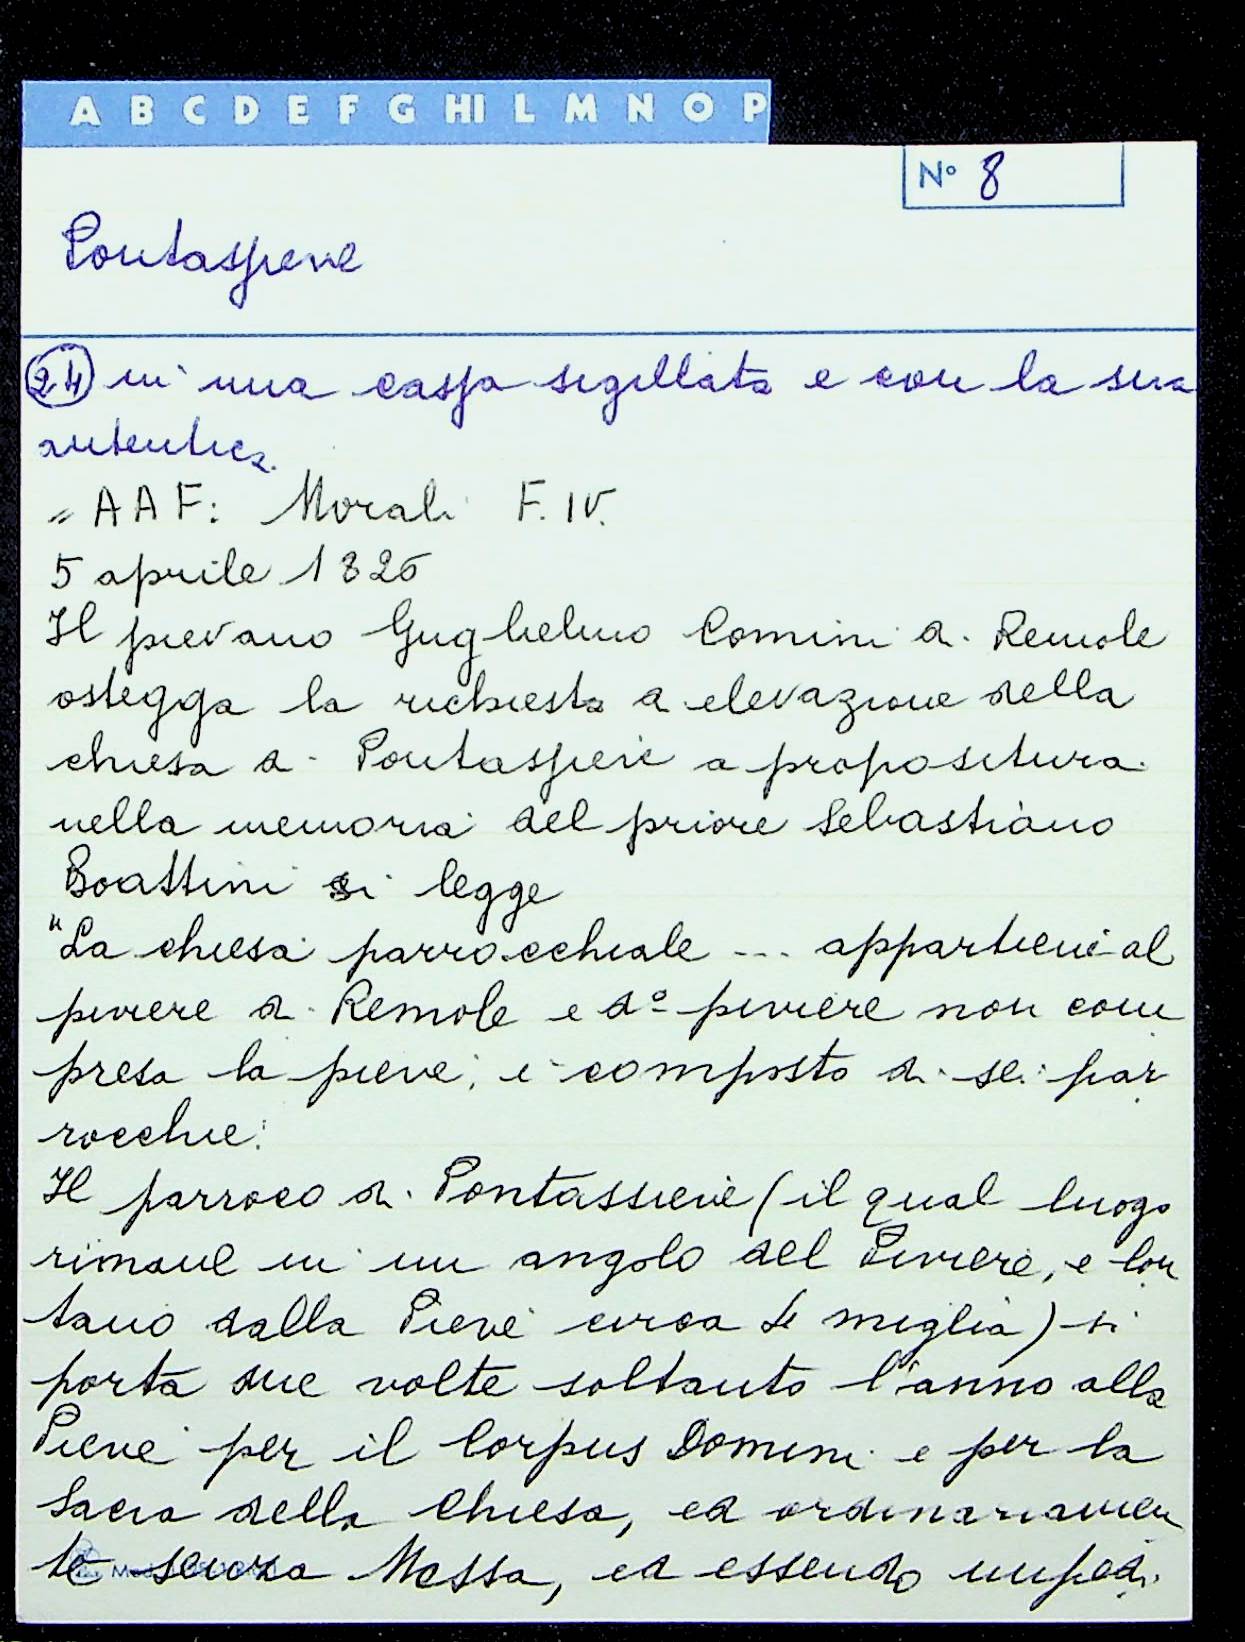 A B C D E F G HI L M N O P
N° 8
Pontassieve
24 in una cassa sigillata e con la sua
autentica.
" AAF: Morali F. IV.
5 aprile 1826
Il pievano Guglielmo Comini di Remole
osteggia la richiesta di elevazione della
chiesa di Pontassieve a propositura.
nella memoria del priore Sebastiano
Boattini si legge
"La chiesa parrocchiale --- appartiene al
piviere di Remole e d° piviere non com
presa la pieve, è composto di sei par
rocchie:
Il parroco di Pontassieve (il qual luogo
rimane in un angolo del Piviere, e lon
tano dalla Pieve circa 4 miglia) si
porta due volte soltanto l'anno alla
Pieve per il Corpus Domini e per la
Sacra della Chiesa, ed ordinariamen
te senza Messa, ed essendo impedi